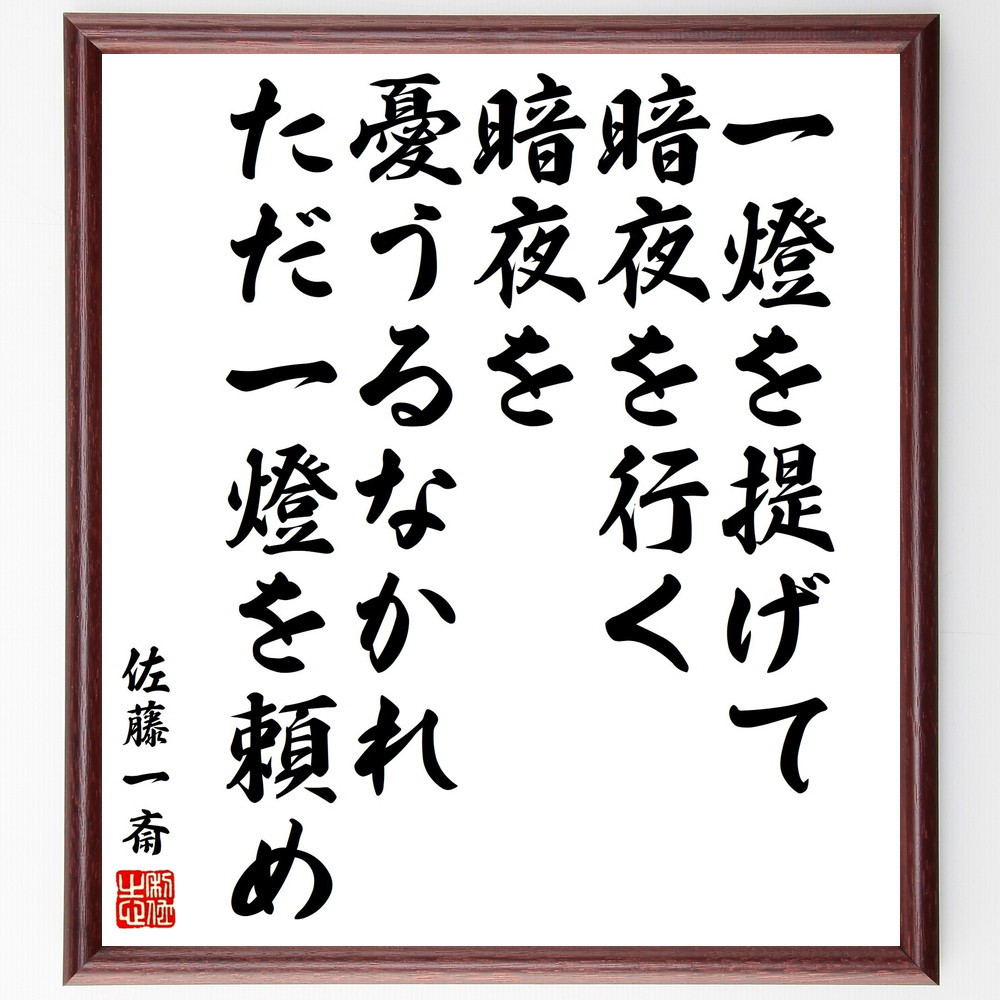 一燈を提げて
暗夜を行く
暗夜を
憂うるなかれ
ただ一燈を頼め
佐藤一斎